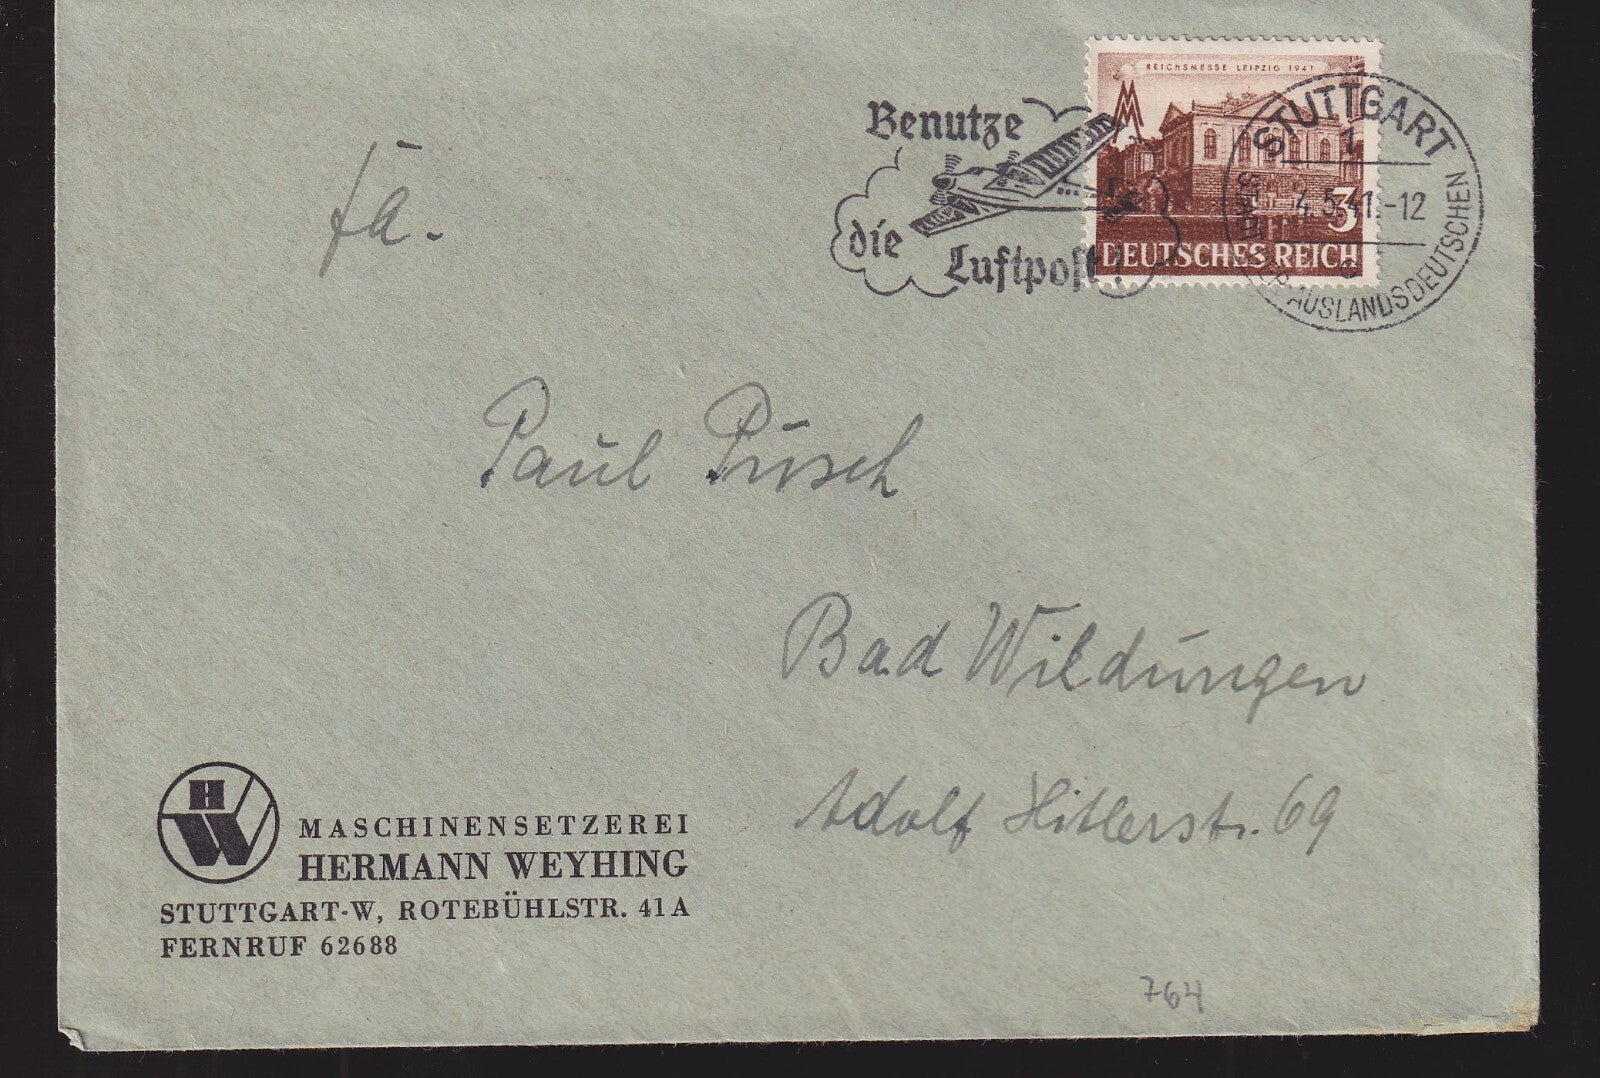 REICHSMESSE LEIPZIG 1941
3
DEUTSCHES REICH
Benutze
die Luftpost!
STUTTGART
1
4.5.41.-12
c
STADT DER AUSLANDSDEUTSCHEN
Fa.
Paul Püsch
Bad Wildungen
Adolf Hitlerstr. 69
HW
MASCHINENSETZEREI
HERMANN WEYHING
STUTTGART-W, ROTEBÜHLSTR. 41A
FERNRUF 62688
764